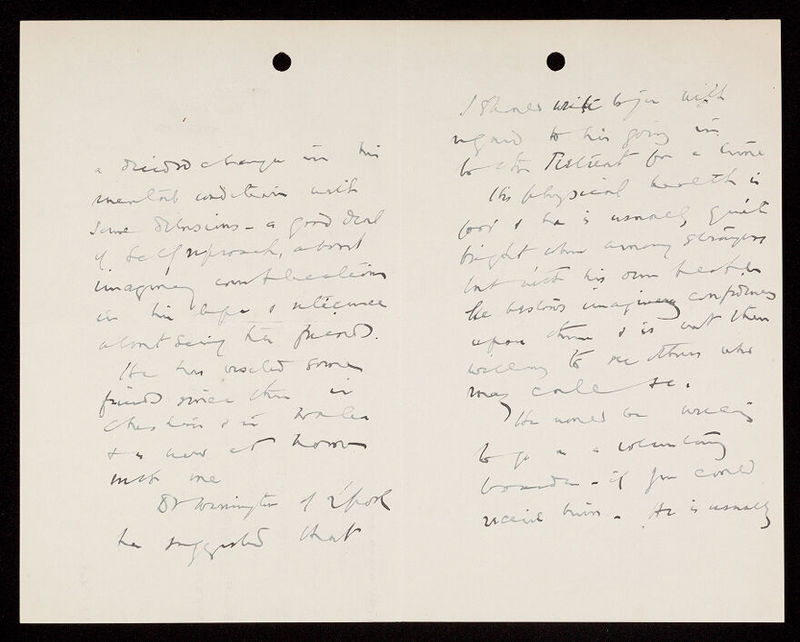 a decided change in his
mental condition with
some delusions - a good deal
of self reproach, about
imaginary complications
in his life & reticence
about seeing his friends.
He has visited some
friends since then in
Cheshire & in Wales
& is now at home
with me
Dr Warrington of L'pool
has suggested that
I should write to you with
regard to his going in
to the Retreat for a time
His physical health is
good & he is usually quite
bright when among strangers
but with his own people
he bestows imaginary
upon them & is not then
willing to see others who
may call &c.
He would be willing
to go as a voluntary
boarder - if you could
receive him - He is usually